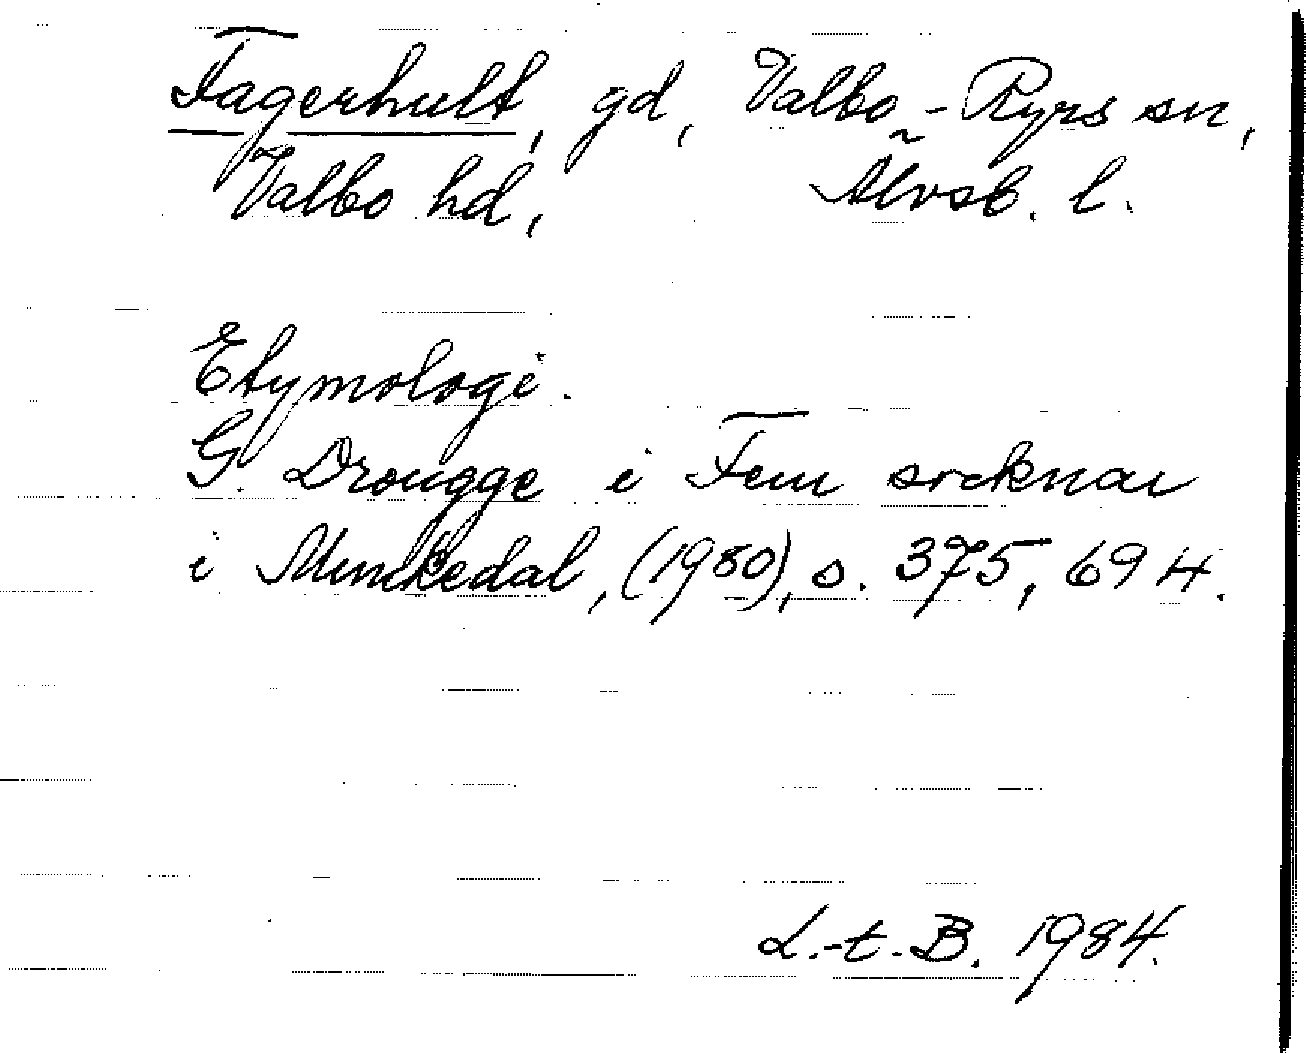 Fagerhult, gd, Valbo-Ryrs sn,
Valbo hd, Älvsb. l.
Etymologi.
G. Drougge i Fem socknar
i Munkedal, (1980), s. 375, 694.
L.-t.B. 1984.